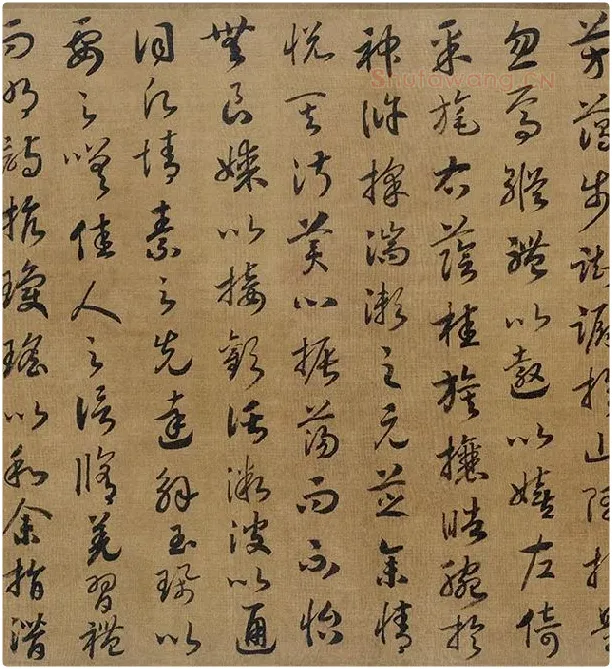 芳藹步踟躕於山隅於是
忽焉縱體以遨以嬉左倚
采旄右蔭桂旗攘皓腕於
神滸採湍瀨之元芝余情
悅其淑美心振蕩而不怡
無良媒以接歡託微波以通
詞願情素之先達解玉珮以
要之嗟佳人之信脩羌習禮
而明詩抗瓊瑤以和余指潛
Shufawang.CN